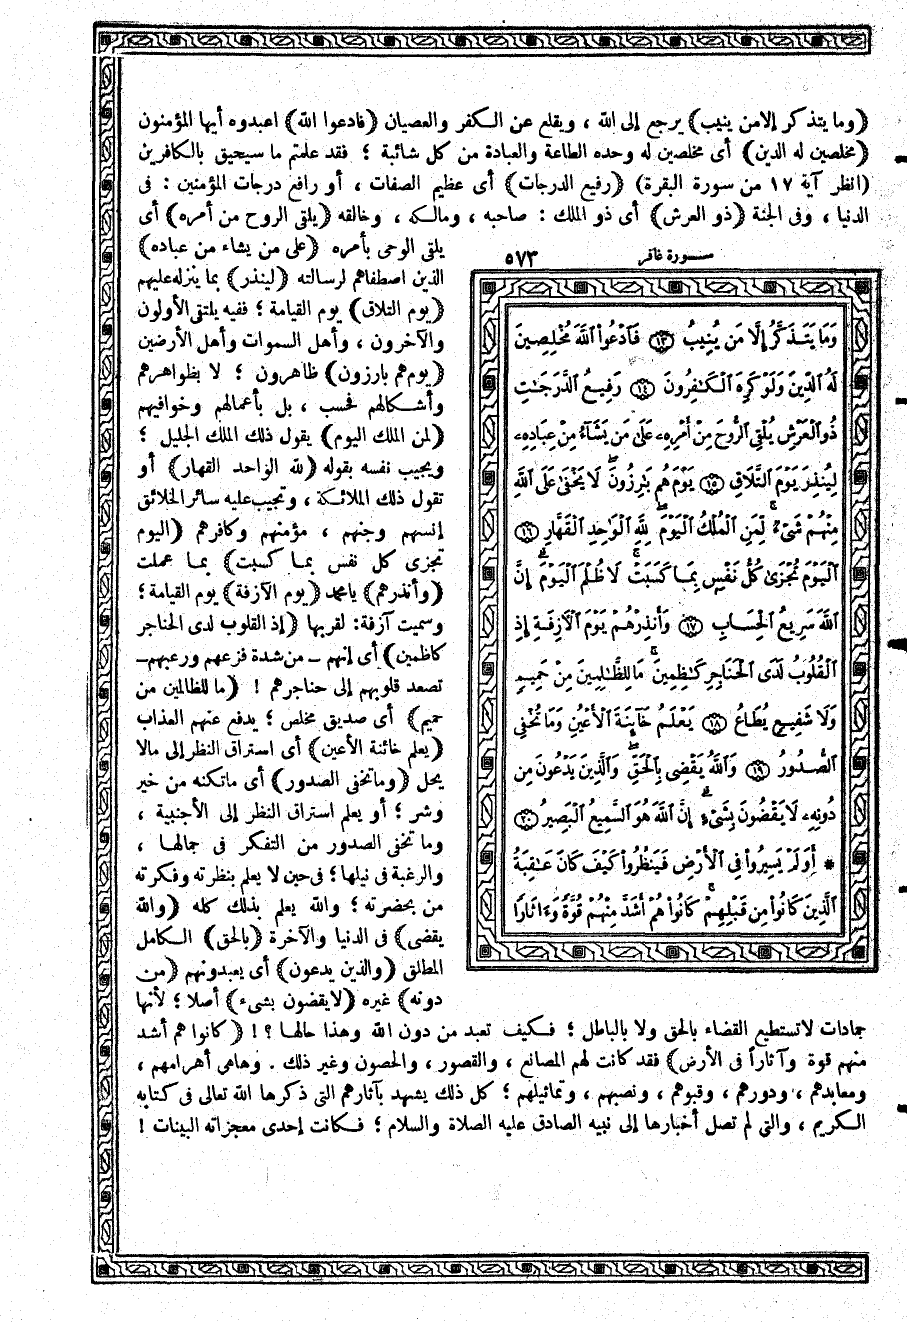 (وما يتذكر إلا من ينيب) يرجع إلى الله ، ويقلع عن الكفر والعصيان (فادعوا الله) اعبدوه أيها المؤمنون
(مخلصين له الدين) أى مخلصين له وحده الطاعة والعبادة من كل شائبة ؛ فقد علمتم ما سيحيق بالكافرين
(انظر آية ١٧ من سورة البقرة) (رفيع الدرجات) أى عظيم الصفات ، أو رافع درجات المؤمنين : فى
الدنيا ، وفى الجنة (ذو العرش) أى ذو الملك : صاحبه ، ومالكه ، وخالقه (يلقى الروح من أمره) أى
يلقى الوحى بأمره (على من يشاء من عباده)
الذين اصطفاهم لرسالته (لينذر) بما ينزله عليهم
(يوم التلاق) يوم القيامة ؛ ففيه يلتقى الأولون
والآخرون ، وأهل السموات وأهل الأرضين
(يوم هم بارزون) ظاهرون ؛ لا بظواهرهم
وأشكالهم فحسب ، بل بأعمالهم وخوافيهم
(لمن الملك اليوم) يقول ذلك الملك الجليل ؛
ويجيب نفسه بقوله (لله الواحد القهار) أو
تقول ذلك الملائكة ، وتجيب عليه سائر الخلائق
إنسهم وجنهم ، مؤمنهم وكافرهم (اليوم
تجزى كل نفس بما كسبت) بما عملت
(وأنذرهم) يا محمد (يوم الآزفة) يوم القيامة ؛
وسميت آزفة : لقربها (إذ القلوب لدى الحناجر
كاظمين) أى إنهم ــ من شدة فزعهم ورعبهم ــ
تصعد قلوبهم إلى حناجرهم ! (ما للظالمين من
حميم) أى صديق مخلص ؛ يدفع عنهم العذاب
(يعلم خائنة الأعين) أى استراق النظر إلى مالا
يحل (وما تخفى الصدور) أى ما تكنه من خير
وشر ؛ أو يعلم استراق النظر إلى الأجنبية ،
وما تخفى الصدور من التفكر فى جمالها ،
والرغبة فى نيلها ؛ فى حين لا يعلم بنظرته وفكرته
من بحضرته ؛ والله يعلم بذلك كله (والله
يقضى) فى الدنيا والآخرة (بالحق) الكامل
المطلق (والذين يدعون) أى يعبدونهم (من
دونه) غيره (لا يقضون بشىء) أصلا ؛ لأنها
سورة غافر ٥٧٣
وَمَا يَتَذَكَّرُ إِلَّا مَن يُنِيبُ ١٣ فَٱدْعُوا۟ ٱللَّهَ مُخْلِصِينَ
لَهُ ٱلدِّينَ وَلَوْ كَرِهَ ٱلْكَٰفِرُونَ ١٤ رَفِيعُ ٱلدَّرَجَٰتِ
ذُو ٱلْعَرْشِ يُلْقِى ٱلرُّوحَ مِنْ أَمْرِهِۦ عَلَىٰ مَن يَشَآءُ مِنْ عِبَادِهِۦ
لِيُنذِرَ يَوْمَ ٱلتَّلَاقِ ١٥ يَوْمَ هُم بَٰرِزُونَ ۖ لَا يَخْفَىٰ عَلَى ٱللَّهِ
مِنْهُمْ شَىْءٌ ۚ لِّمَنِ ٱلْمُلْكُ ٱلْيَوْمَ ۖ لِلَّهِ ٱلْوَٰحِدِ ٱلْقَهَّارِ ١٦
ٱلْيَوْمَ تُجْزَىٰ كُلُّ نَفْسٍۭ بِمَا كَسَبَتْ ۚ لَا ظُلْمَ ٱلْيَوْمَ ۚ إِنَّ
ٱللَّهَ سَرِيعُ ٱلْحِسَابِ ١٧ وَأَنذِرْهُمْ يَوْمَ ٱلْآزِفَةِ إِذِ
ٱلْقُلُوبُ لَدَى ٱلْحَنَاجِرِ كَٰظِمِينَ ۚ مَا لِلظَّٰلِمِينَ مِنْ حَمِيمٍ
وَلَا شَفِيعٍ يُطَاعُ ١٨ يَعْلَمُ خَآئِنَةَ ٱلْأَعْيُنِ وَمَا تُخْفِى
ٱلصُّدُورُ ١٩ وَٱللَّهُ يَقْضِى بِٱلْحَقِّ ۖ وَٱلَّذِينَ يَدْعُونَ مِن
دُونِهِۦ لَا يَقْضُونَ بِشَىْءٍ ۗ إِنَّ ٱللَّهَ هُوَ ٱلسَّمِيعُ ٱلْبَصِيرُ ٢٠
* أَوَلَمْ يَسِيرُوا۟ فِى ٱلْأَرْضِ فَيَنظُرُوا۟ كَيْفَ كَانَ عَٰقِبَةُ
ٱلَّذِينَ كَانُوا۟ مِن قَبْلِهِمْ ۚ كَانُوا۟ هُمْ أَشَدَّ مِنْهُمْ قُوَّةً وَءَاثَارًا
جمادات لا تستطيع القضاء بالحق ولا بالباطل ؛ فكيف تعبد من دون الله وهذا حالها ؟ ! (كانوا هم أشد
منهم قوة وآثاراً فى الأرض) فقد كانت لهم المصانع ، والقصور ، والحصون وغير ذلك . وهاهى أهرامهم ،
ومعابدهم ، ودورهم ، وقبوهم ، ونصبهم ، وتماثيلهم ؛ كل ذلك يشهد بآثارهم التى ذكرها الله تعالى فى كتابه
الكريم ، والتى لم تصل أخبارها إلى نبيه الصادق عليه الصلاة والسلام ؛ فكانت إحدى معجزاته البينات !